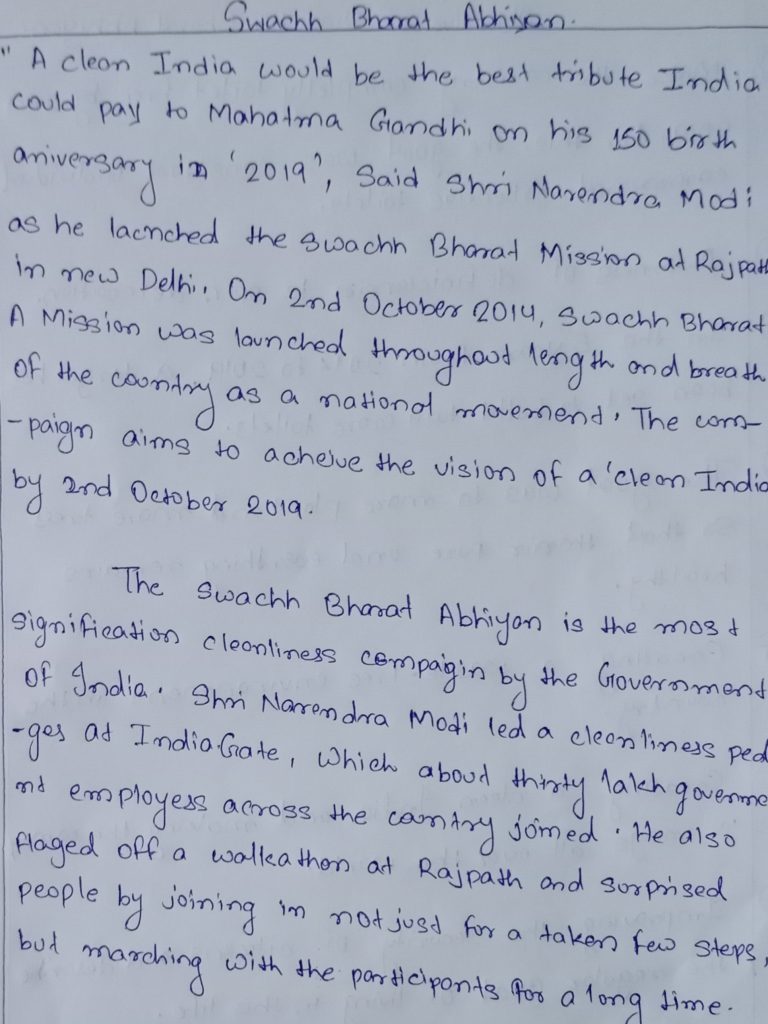 Swachh Bharat Abhiyan.
" A clean India would be the best tribute India
could pay to Mahatma Gandhi on his 150 birth
aniversary in '2019', Said Shri Narendra Modi
as he lacnched the Swachh Bharat Mission at Rajpath
in new Delhi. On 2nd October 2014, Swachh Bharat
A Mission was launched throughout length and breath
of the country as a national movement. The com-
-paign aims to acheive the vision of a 'clean India
by 2nd October 2019.
The Swachh Bharat Abhiyan is the most
signification cleanliness compaigin by the Government
of India. Shri Narendra Modi led a cleanliness ped
-ges at India Gate, Which about thirty lakh governme
nt employess across the country joined. He also
flaged off a walkathon at Rajpath and surprised
people by joining in not just for a taken few steps,
but marching with the participants for a long time.